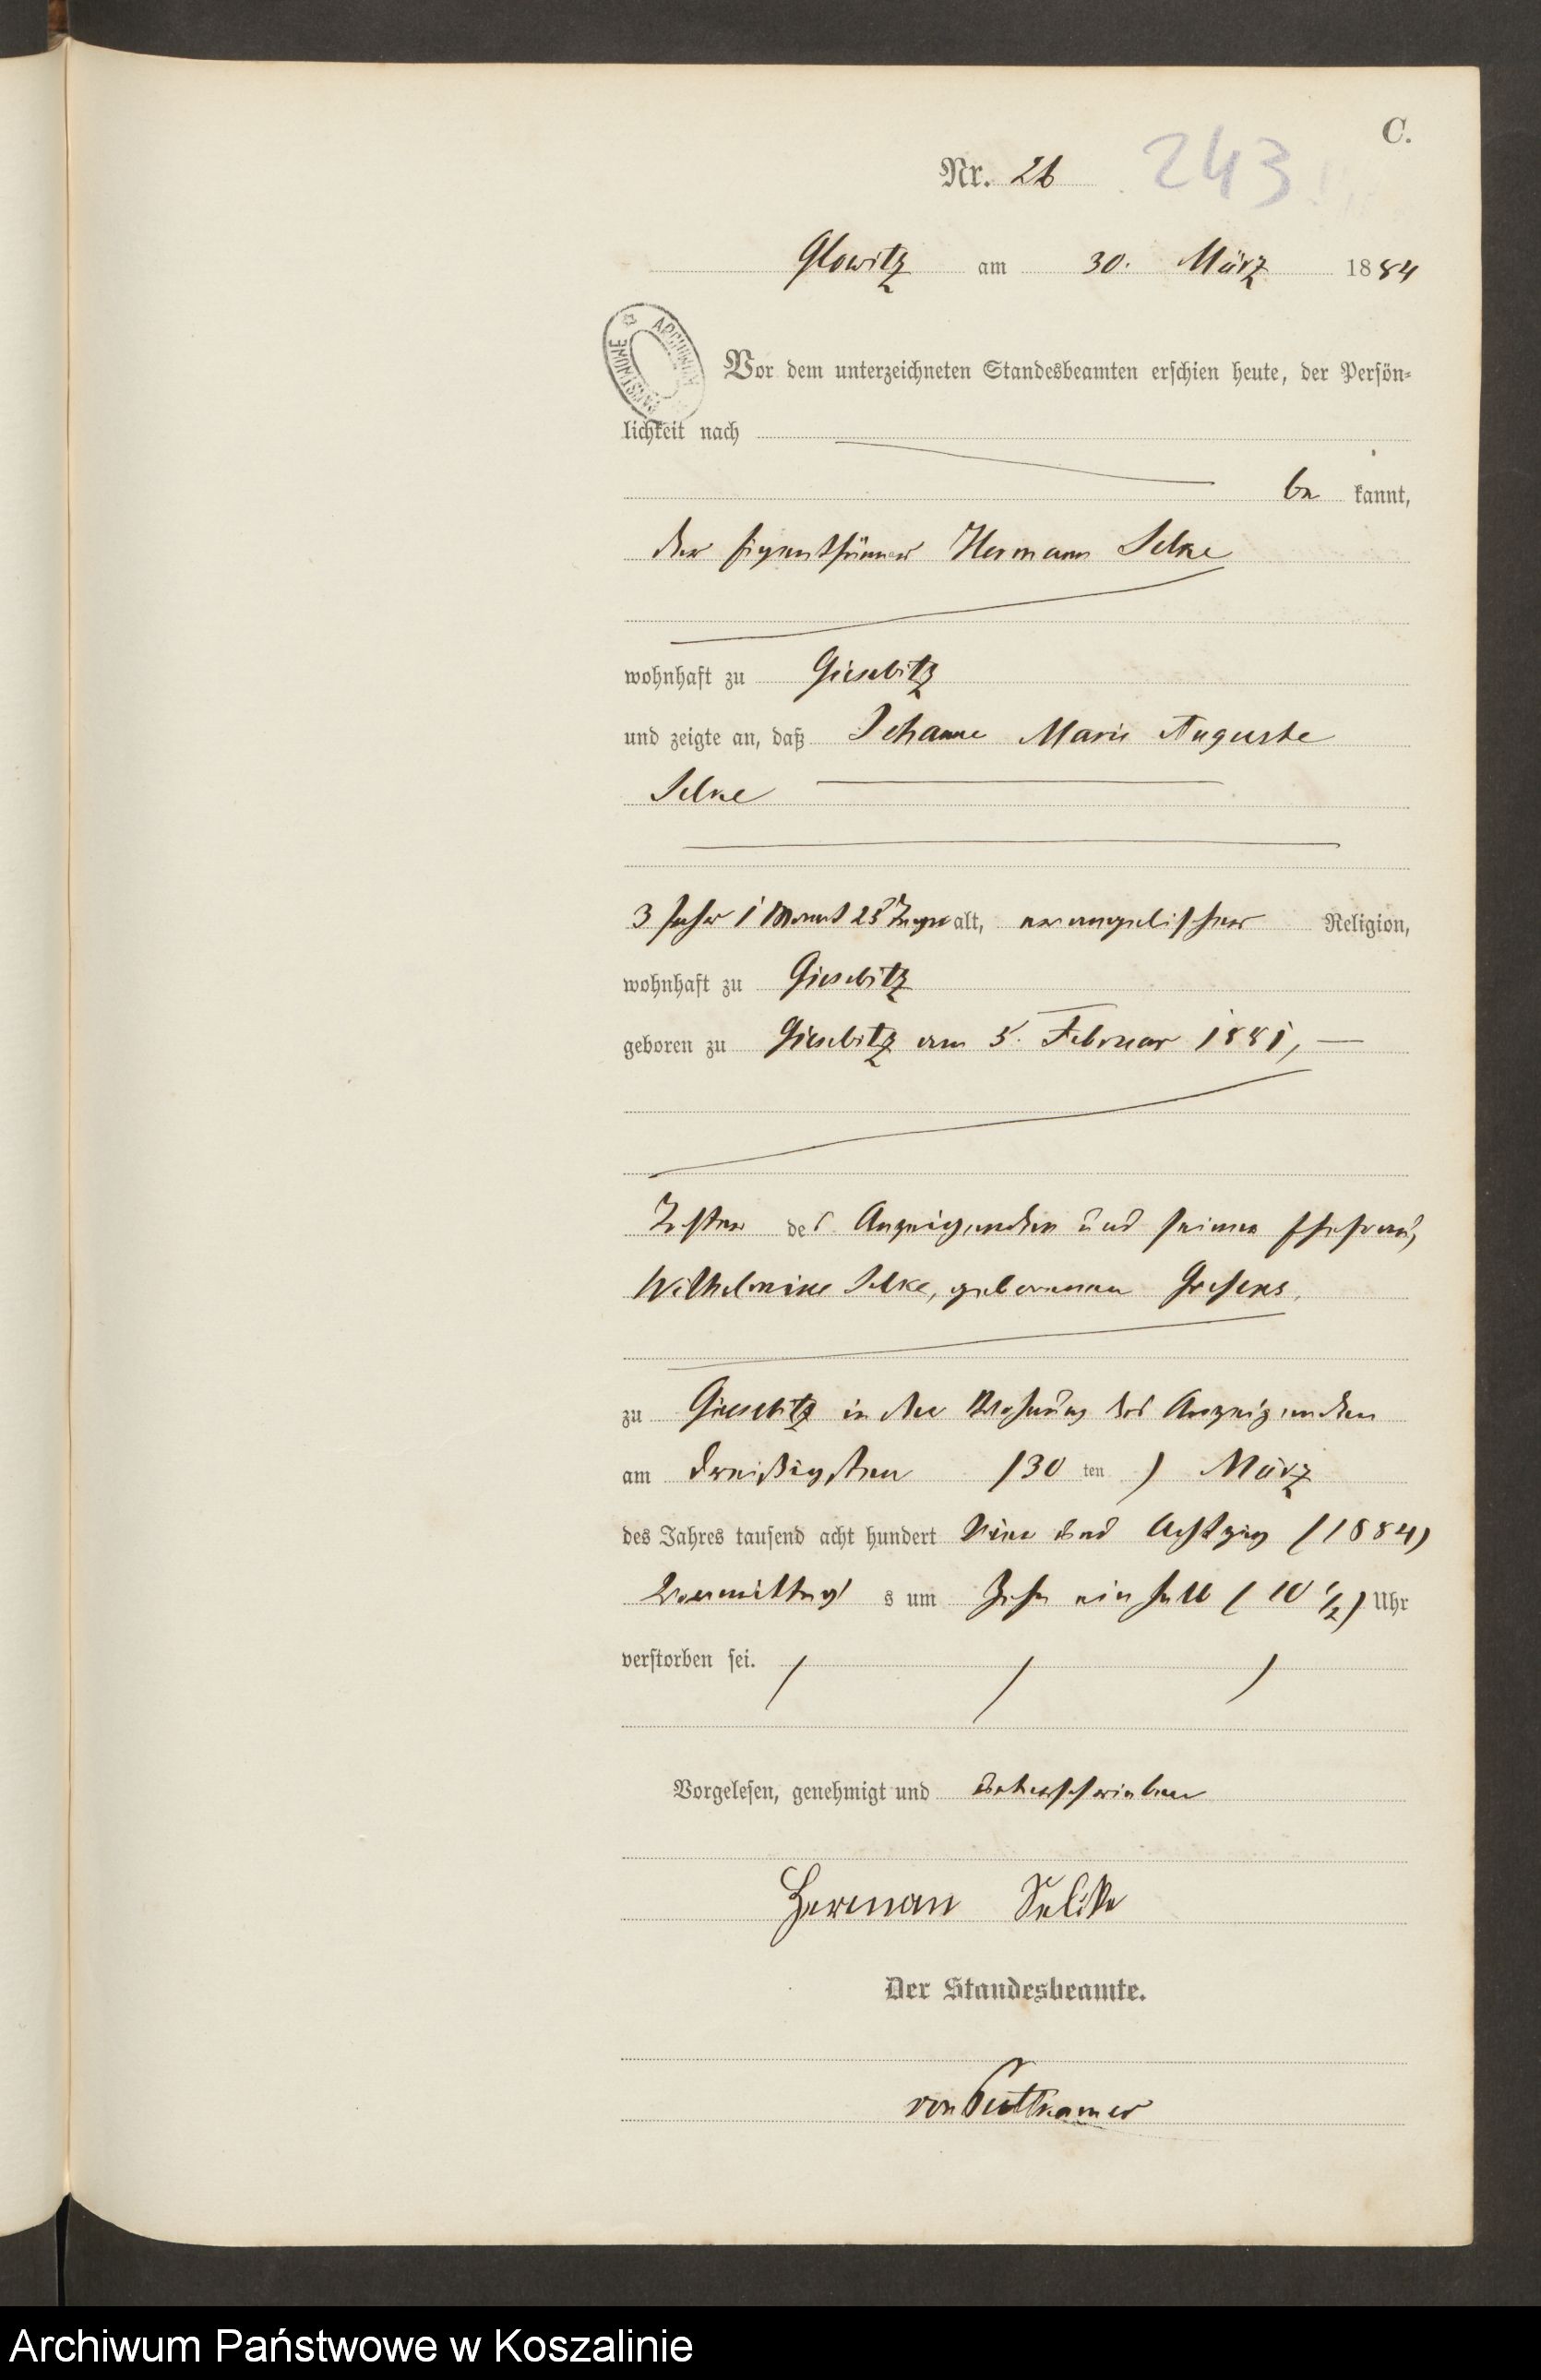 C.
Nr. 26 243
Glowitz am 30. März 1884
ARCHIWUM PAŃSTWOWE
Vor dem unterzeichneten Standesbeamten erschien heute, der Persön-
lichkeit nach
be kannt,
der Eigenthümer Hermann Selke
wohnhaft zu Giesebitz
und zeigte an, daß Johanne Marie Auguste
Selke
3 Jahr 1 Monat 25 Tage alt, evangelischer Religion,
wohnhaft zu Giesebitz
geboren zu Giesebitz am 5. Februar 1881,
Tochter des Anzeigenden und seiner Ehefrau,
Wilhelmine Selke, geborenen
zu Giesebitz in der Wohnung des Anzeigenden
am dreißigsten (30 ten) März
des Jahres tausend acht hundert vier und Achtzig (1884)
Vormittag s um Zehn ein halb (10 1/2) Uhr
verstorben sei.
Vorgelesen, genehmigt und unterschrieben
Herman Selike
Der Standesbeamte.
von Puttkamer
Archiwum Państwowe w Koszalinie